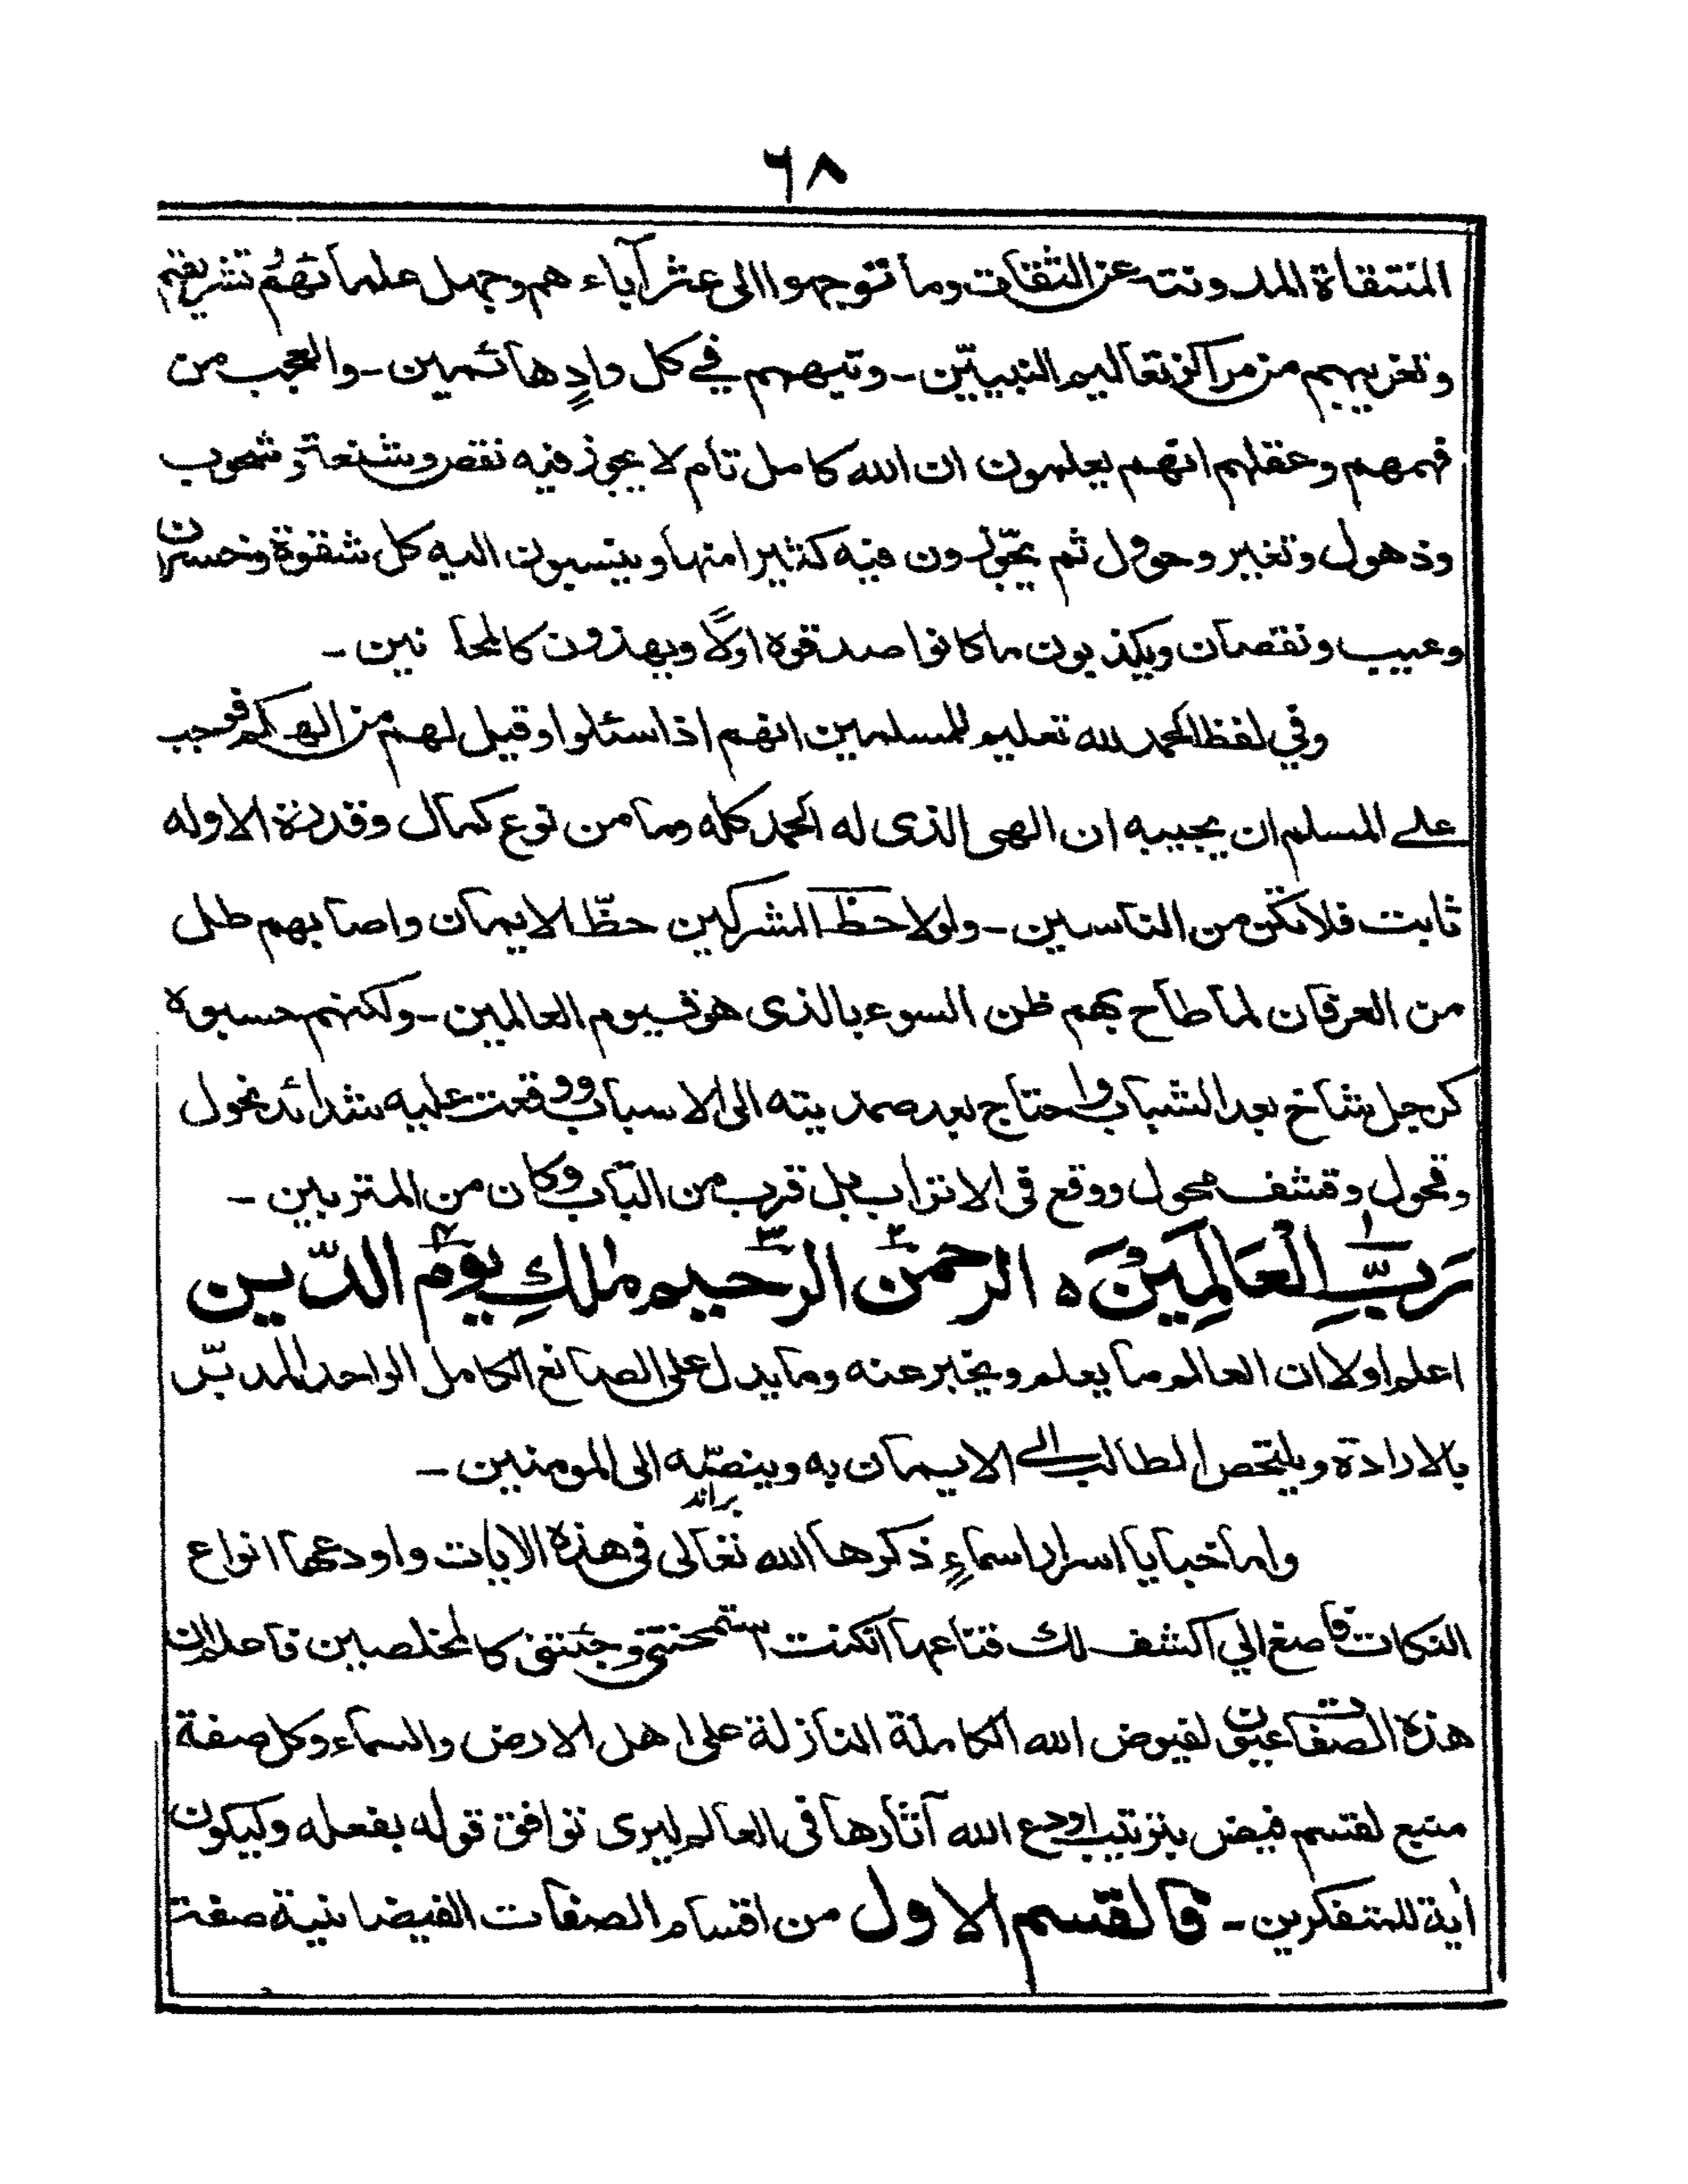 ٦٨
المنتقاة المدونة عن الثقات وما توجهوا الى عثر آباء هم وجهل علمائهم تشريقهم
وتغريبهم من مراكز تعاليم النبيين ـ وتيههم في كل وادٍ هائمين ـ والعجب من
فهمهم وعقلهم انهم يعلمون ان الله كامل تام لا يجوز فيه نقص وشنعة وشحوب
وذهول وتغير وحوول ثم يجوّزون فيه كثيرا منها وينسبون اليه كل شقوة وخسران
وعيب ونقصان ويكذبون ما كانوا صدقوه اولًا ويهذون كالمجا نين ـ
وفي لفظ الحمد لله تعليم للمسلمين انهم اذا سئلوا وقيل لهم من الهكم فوجب
على المسلم ان يجيبه ان الهى الذى له الحمد كله وما من نوع كمال وقدرة الا وله
ثابت فلا تكن من الناسين ـ ولو لاحظ المشركين حظّ الايمان واصابهم طل
من العرفان لما طاح بهم ظن السوء بالذى هو قيوم العالمين ـ ولكنهم حسبوه
كرجل شاخ بعد الشباب واحتاج بعد صمديته الى الاسباب ووقعت عليه شدائد نحول
وقحول وقشف محول ووقع فى الاتراب بل قرب من التباب وكان من المتربين ـ
رَبِّ الْعَالَمِيْنَ ه الرحمن الرحيم مٰلكِ يوم الدّين
١ ٢ ٣ ٤
اعلم اولا ان العالم ما يعلم ويخبر عنه وما يدل على الصانع الكامل الواحد المدبّر
بالارادة ويلتحص الطالب الى الايمان به وينصّه الى المومنين ـ
براند
واما خبايا اسرار اسماءٍ ذكرها الله تعالى فى هذه الايات واودعها انواع
النكات فاصغ الي اكشف لك قناعها ان كنت استمحتنى وجئتنى كالمخلصين فاعلم ان
هذه الصفات عيون لفيوض الله الكاملة النازلة على اهل الارض والسماء وكل صفة
منبع لقسم فيض بترتيب اودع الله آثارها فى العالم ليرى توافق قوله بفعله وليكون
اٰية للمتفكرين ـ فالقسم الاول من اقسام الصفات الفيضانية صفة